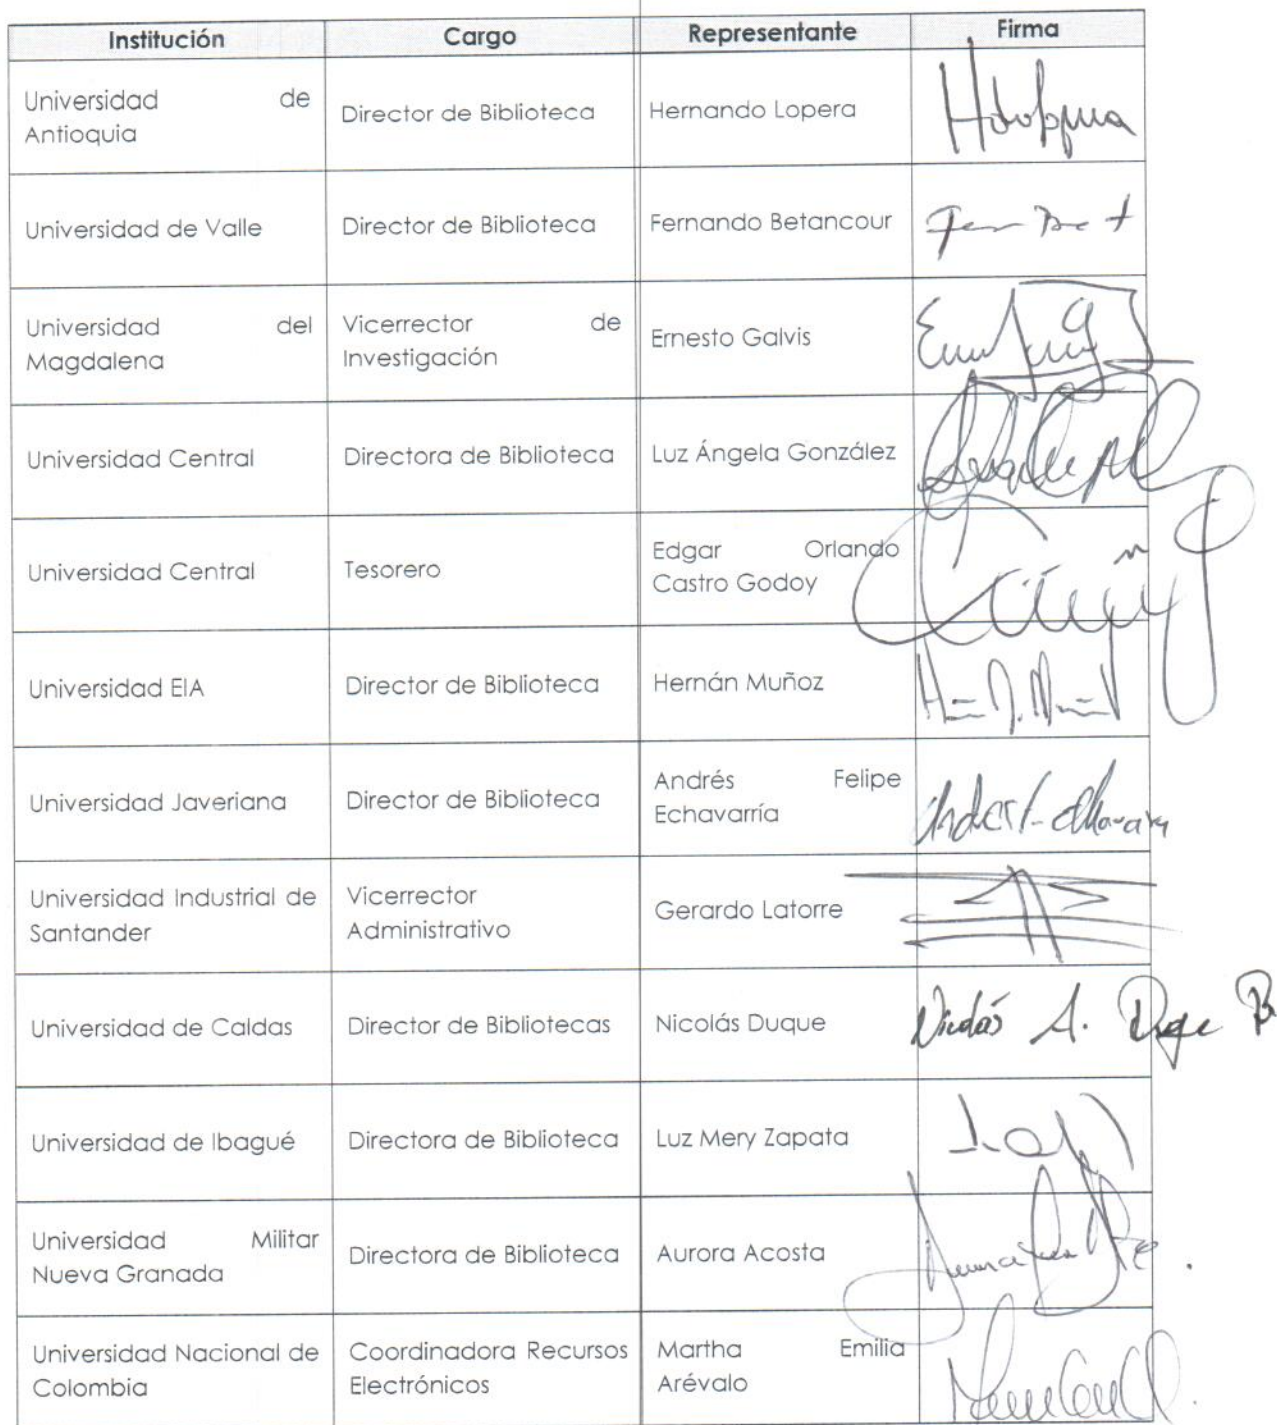 Institución Cargo Representante Firma
Universidad de
Antioquia
Director de Biblioteca
Hernando Lopera
Universidad de Valle
Director de Biblioteca
Fernando Betancour
Universidad del
Magdalena
Vicerrector de
Investigación
Ernesto Galvis
Universidad Central
Directora de Biblioteca
Luz Ángela González
Universidad Central
Tesorero
Edgar Orlando
Castro Godoy
Universidad EIA
Director de Biblioteca
Hernán Muñoz
Universidad Javeriana
Director de Biblioteca
Andrés Felipe
Echavarría
Universidad Industrial de
Santander
Vicerrector
Administrativo
Gerardo Latorre
Universidad de Caldas
Director de Bibliotecas
Nicolás Duque
Nicolás A. Duque B
Universidad de Ibagué
Directora de Biblioteca
Luz Mery Zapata
Universidad Militar
Nueva Granada
Directora de Biblioteca
Aurora Acosta
Universidad Nacional de
Colombia
Coordinadora Recursos
Electrónicos
Martha Emilia
Arévalo